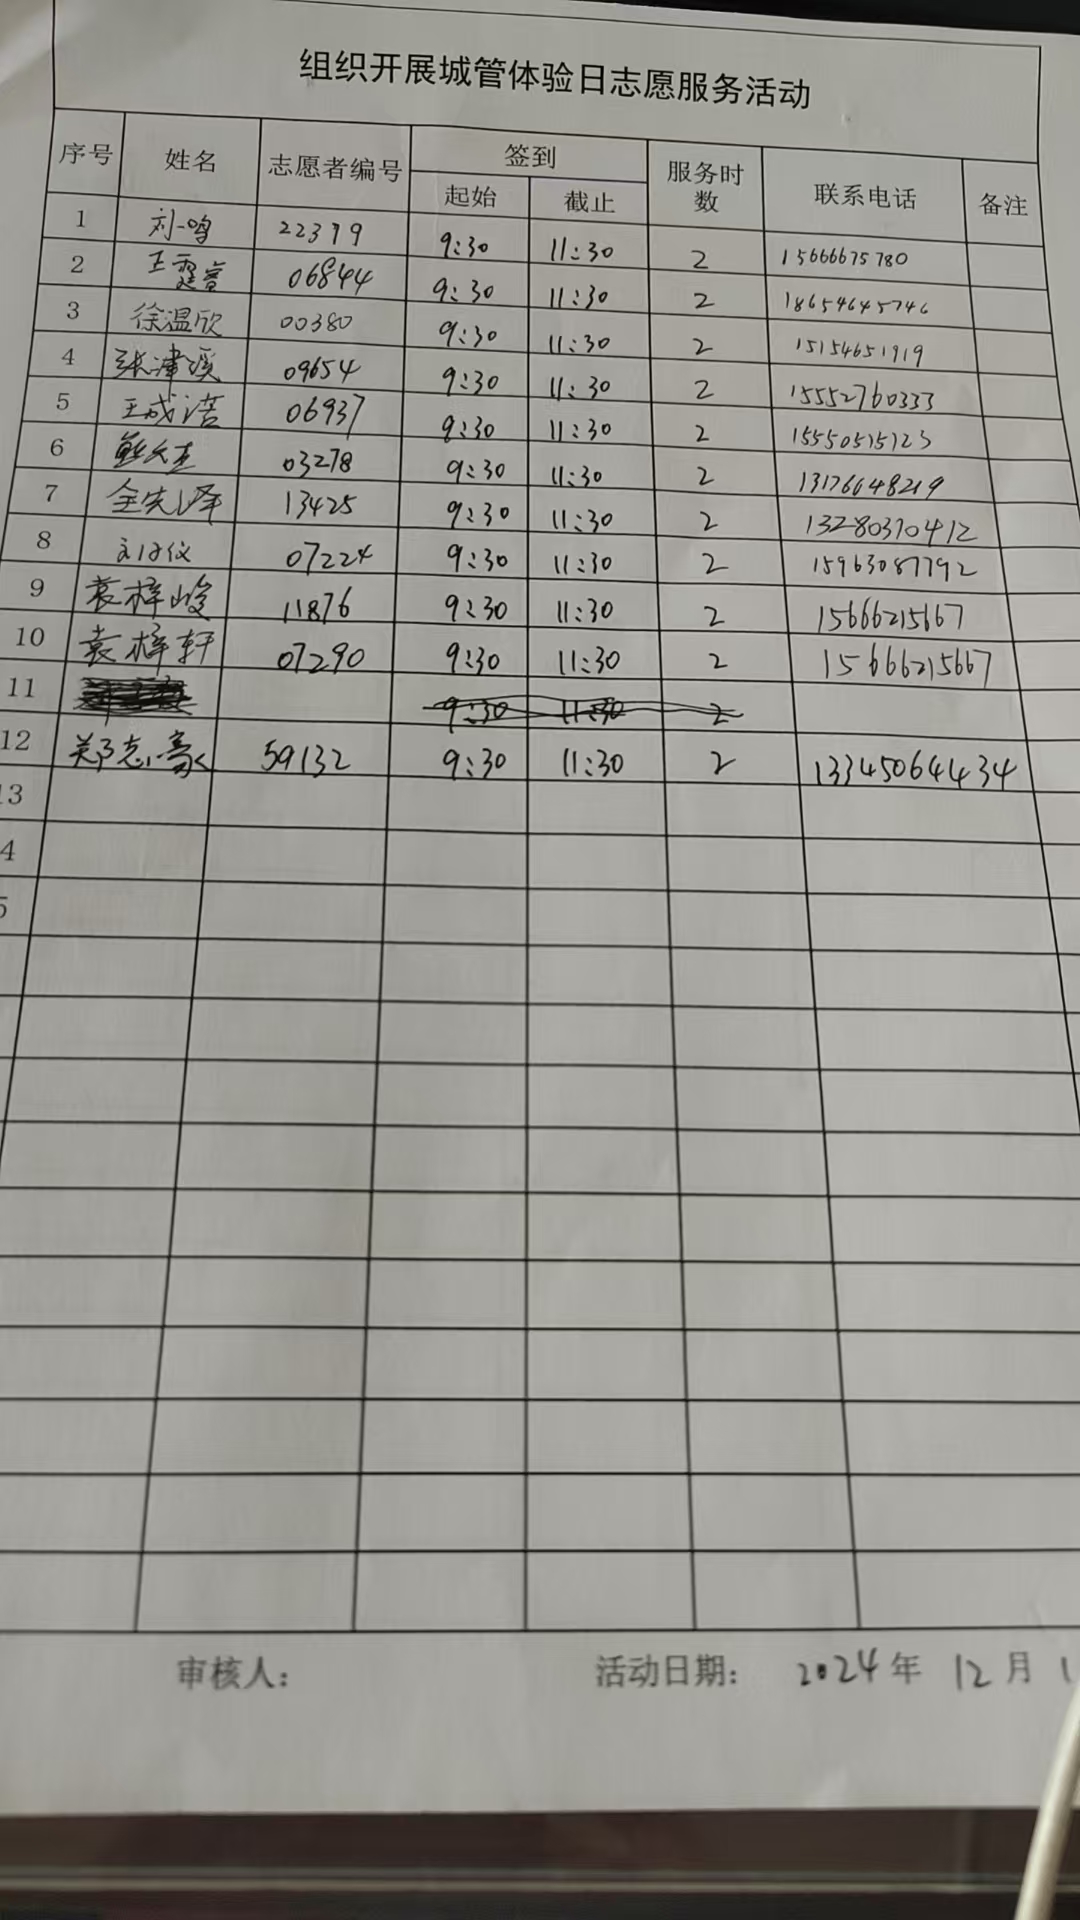 组织开展城管体验日志愿服务活动
序号 姓名 志愿者编号 签到 服务时数 联系电话 备注
起始 截止
1 刘一鸣 22379 9:30 11:30 2 15666675780
2 王霆睿 06844 9:30 11:30 2 18654645746
3 徐温欣 00380 9:30 11:30 2 15154651919
4 张津溪 09654 9:30 11:30 2 15552760333
5 王成浩 06937 9:30 11:30 2 15550515123
6 03278 9:30 11:30 2 13176648219
7 13425 9:30 11:30 2 13280310412
8 07224 9:30 11:30 2 15963087792
9 袁梓峻 11876 9:30 11:30 2 15666215667
10 袁梓轩 07290 9:30 11:30 2 15666215667
11 9:30 11:30 2
12 郑志豪 59132 9:30 11:30 2 13345064434
13
4
5
审核人： 活动日期： 2024年 12月 1